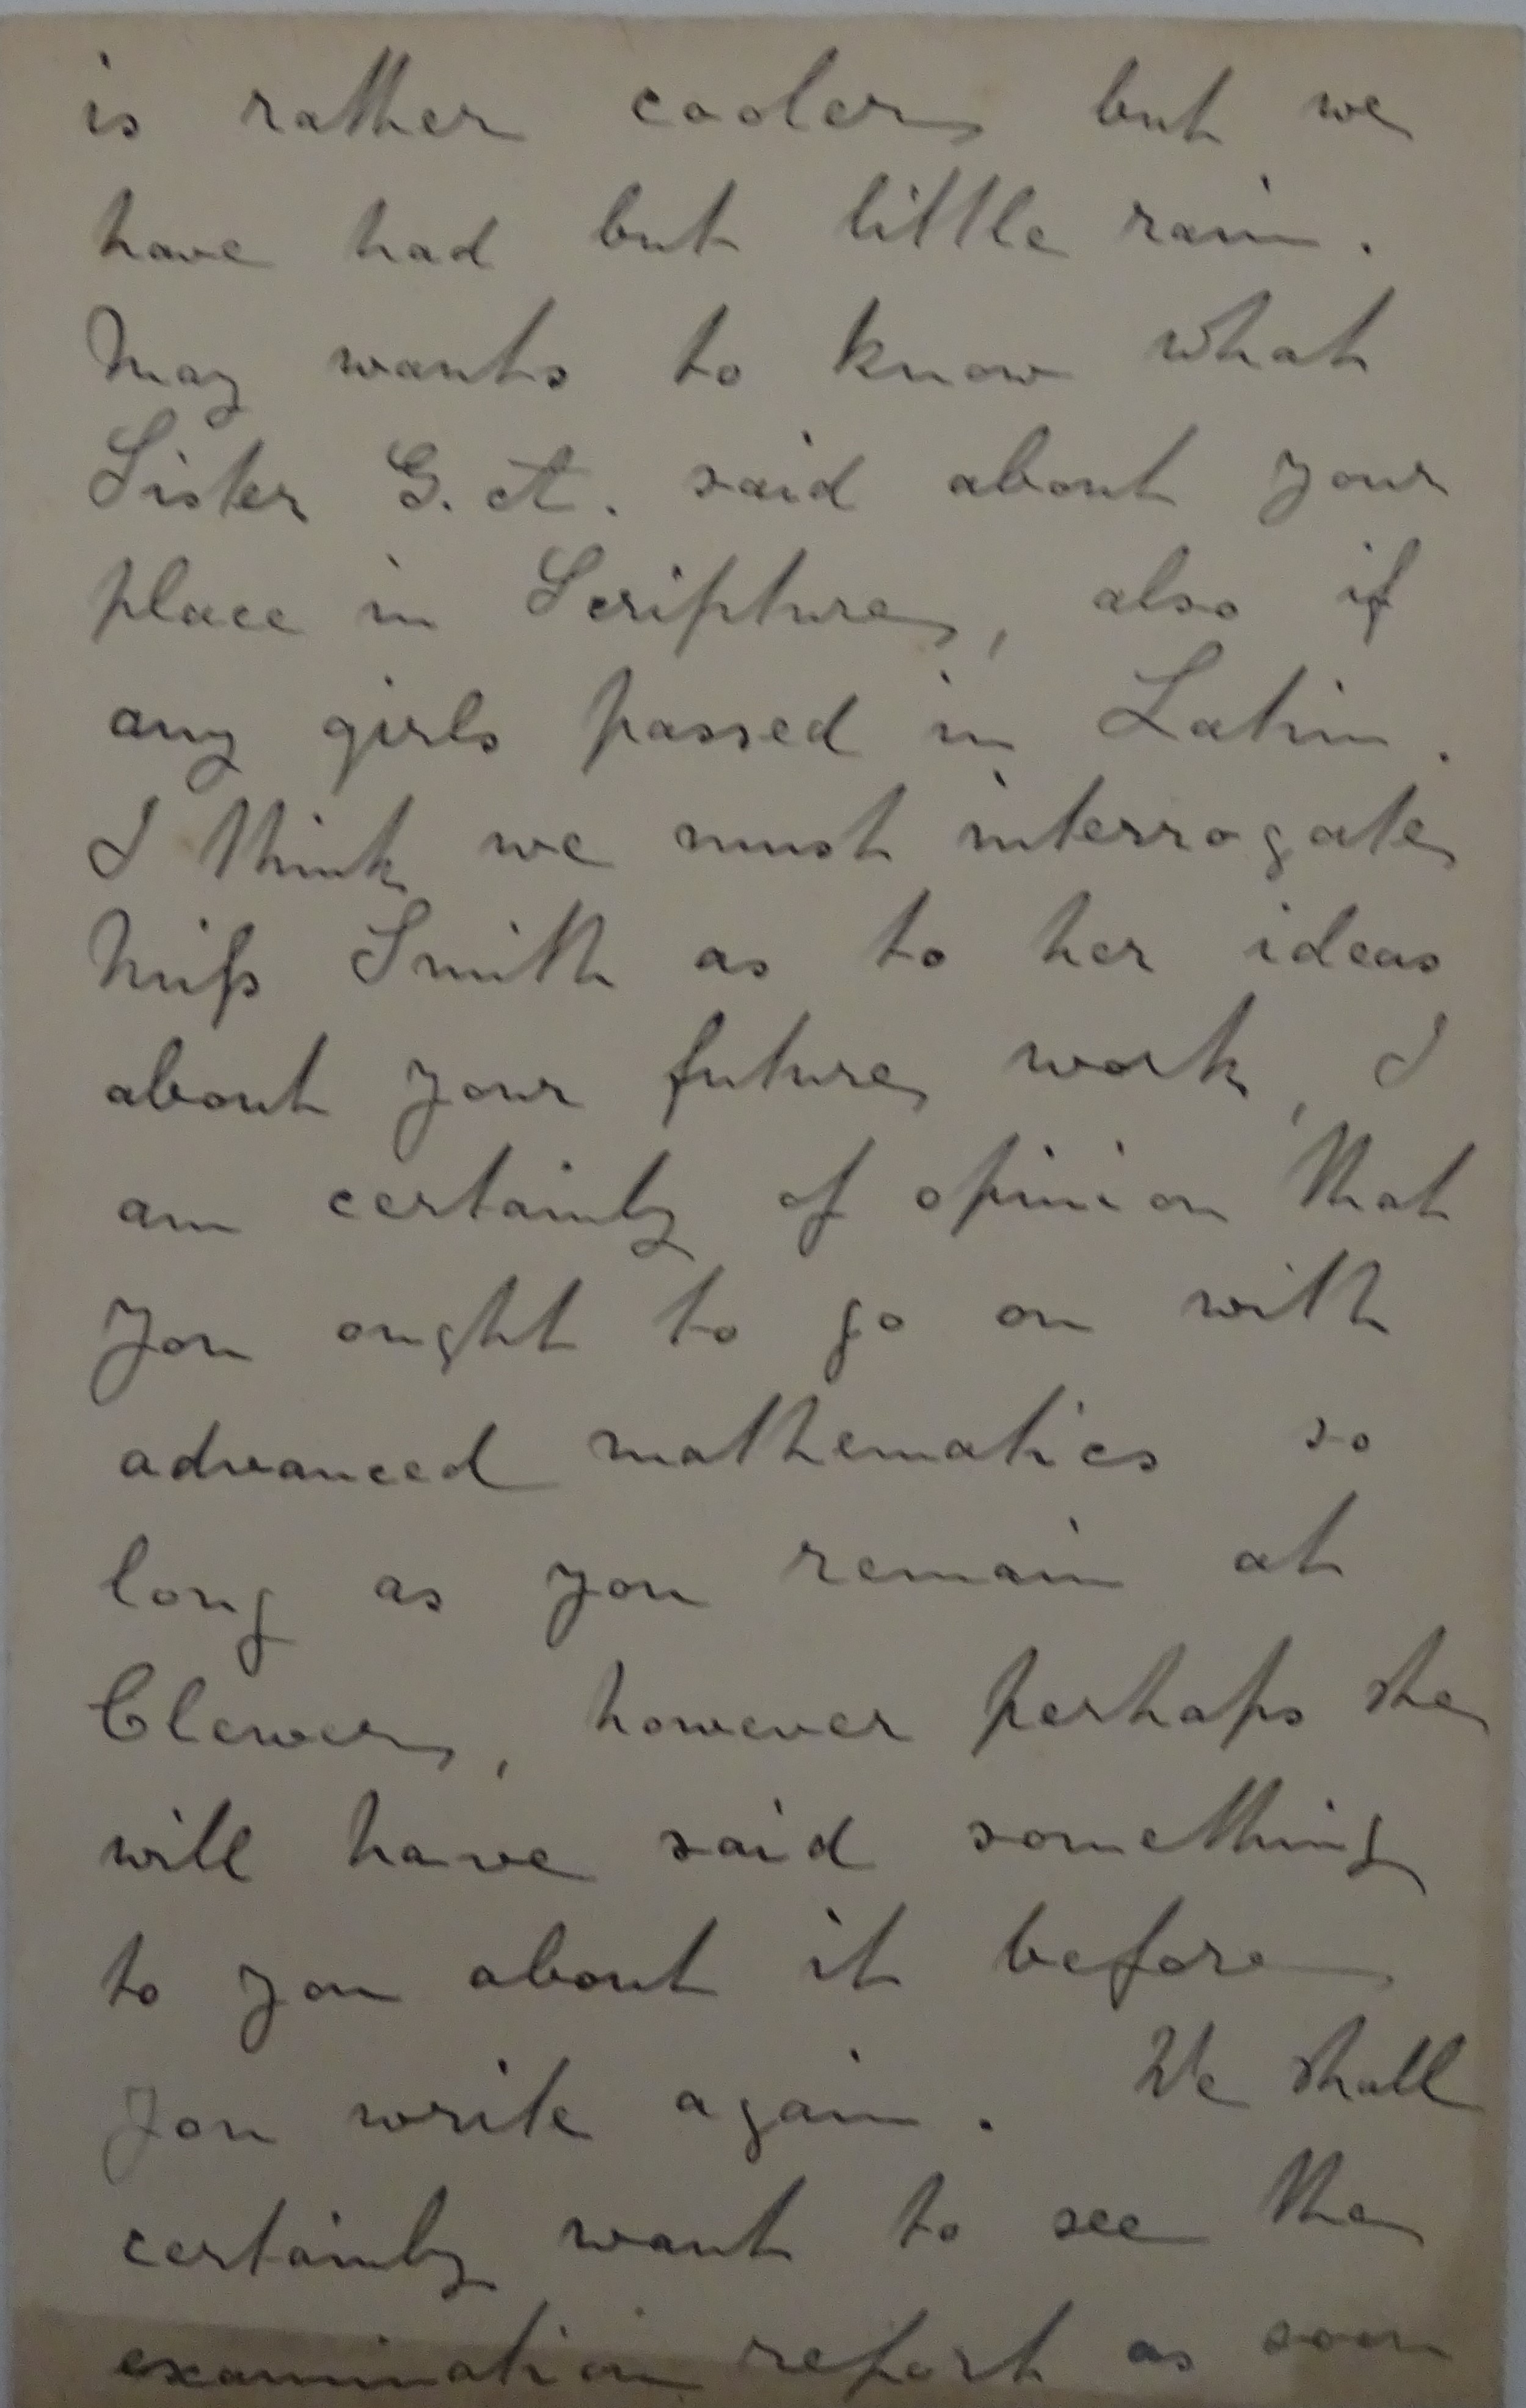 is rather cooler but we
have had but little rain.
May wants to know what
Sister G. A. said about your
place in Scripture, also if
any girls passed in Latin.
I think we must interrogate
Miſs Smith as to her ideas
about your future work, I
am certainly of opinion that
you ought to go on with
advanced mathematics so
long as you remain at
Clewer, however perhaps she
will have said something
to you about it before
you write again. We shall
certainly want to see the
examination report as soon